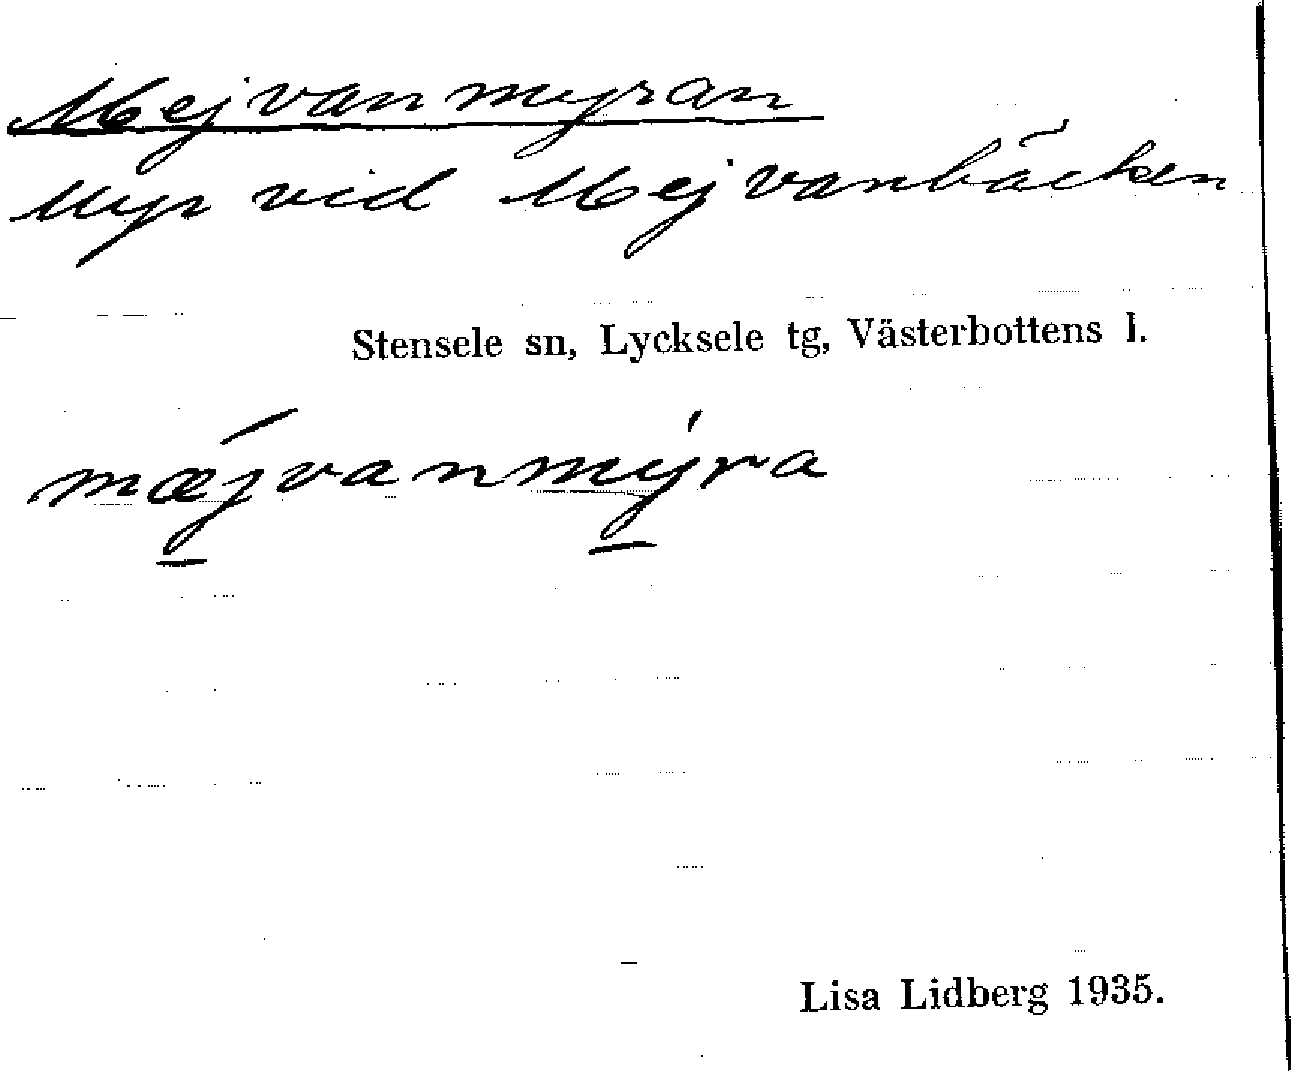 Mejvanmyran
Myr vid Mejvanbäcken
Stensele sn, Lycksele tg, Västerbottens l.
mǽjvanmýra
Lisa Lidberg 1935.